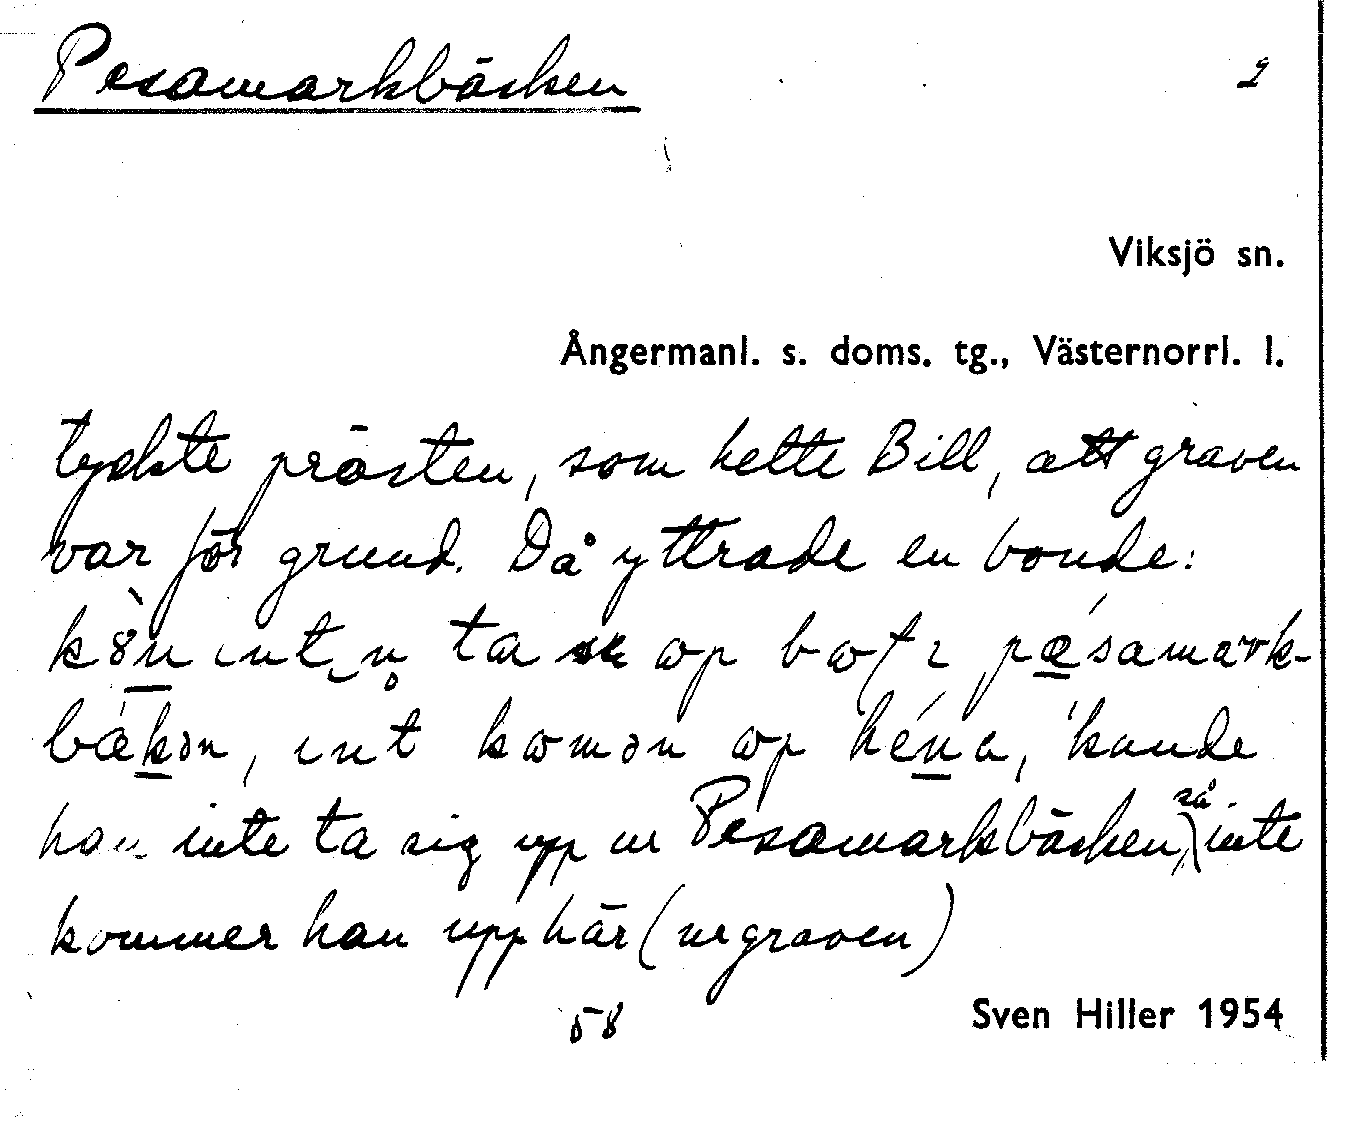 Pesamarkbäcken 2
Viksjö sn.
Ångermanl. s. doms. tg., Västernorrl. l.
tyckte prästen, som hette Bill, att graven
var för grund. Då yttrade en bonde:
ta op pæsamark-
bækən, ɩnt komən op héna, kunde
han inte ta sig upp ur Pesamarkbäcken, så inte
kommer han upp här (ur graven)
58
Sven Hiller 1954